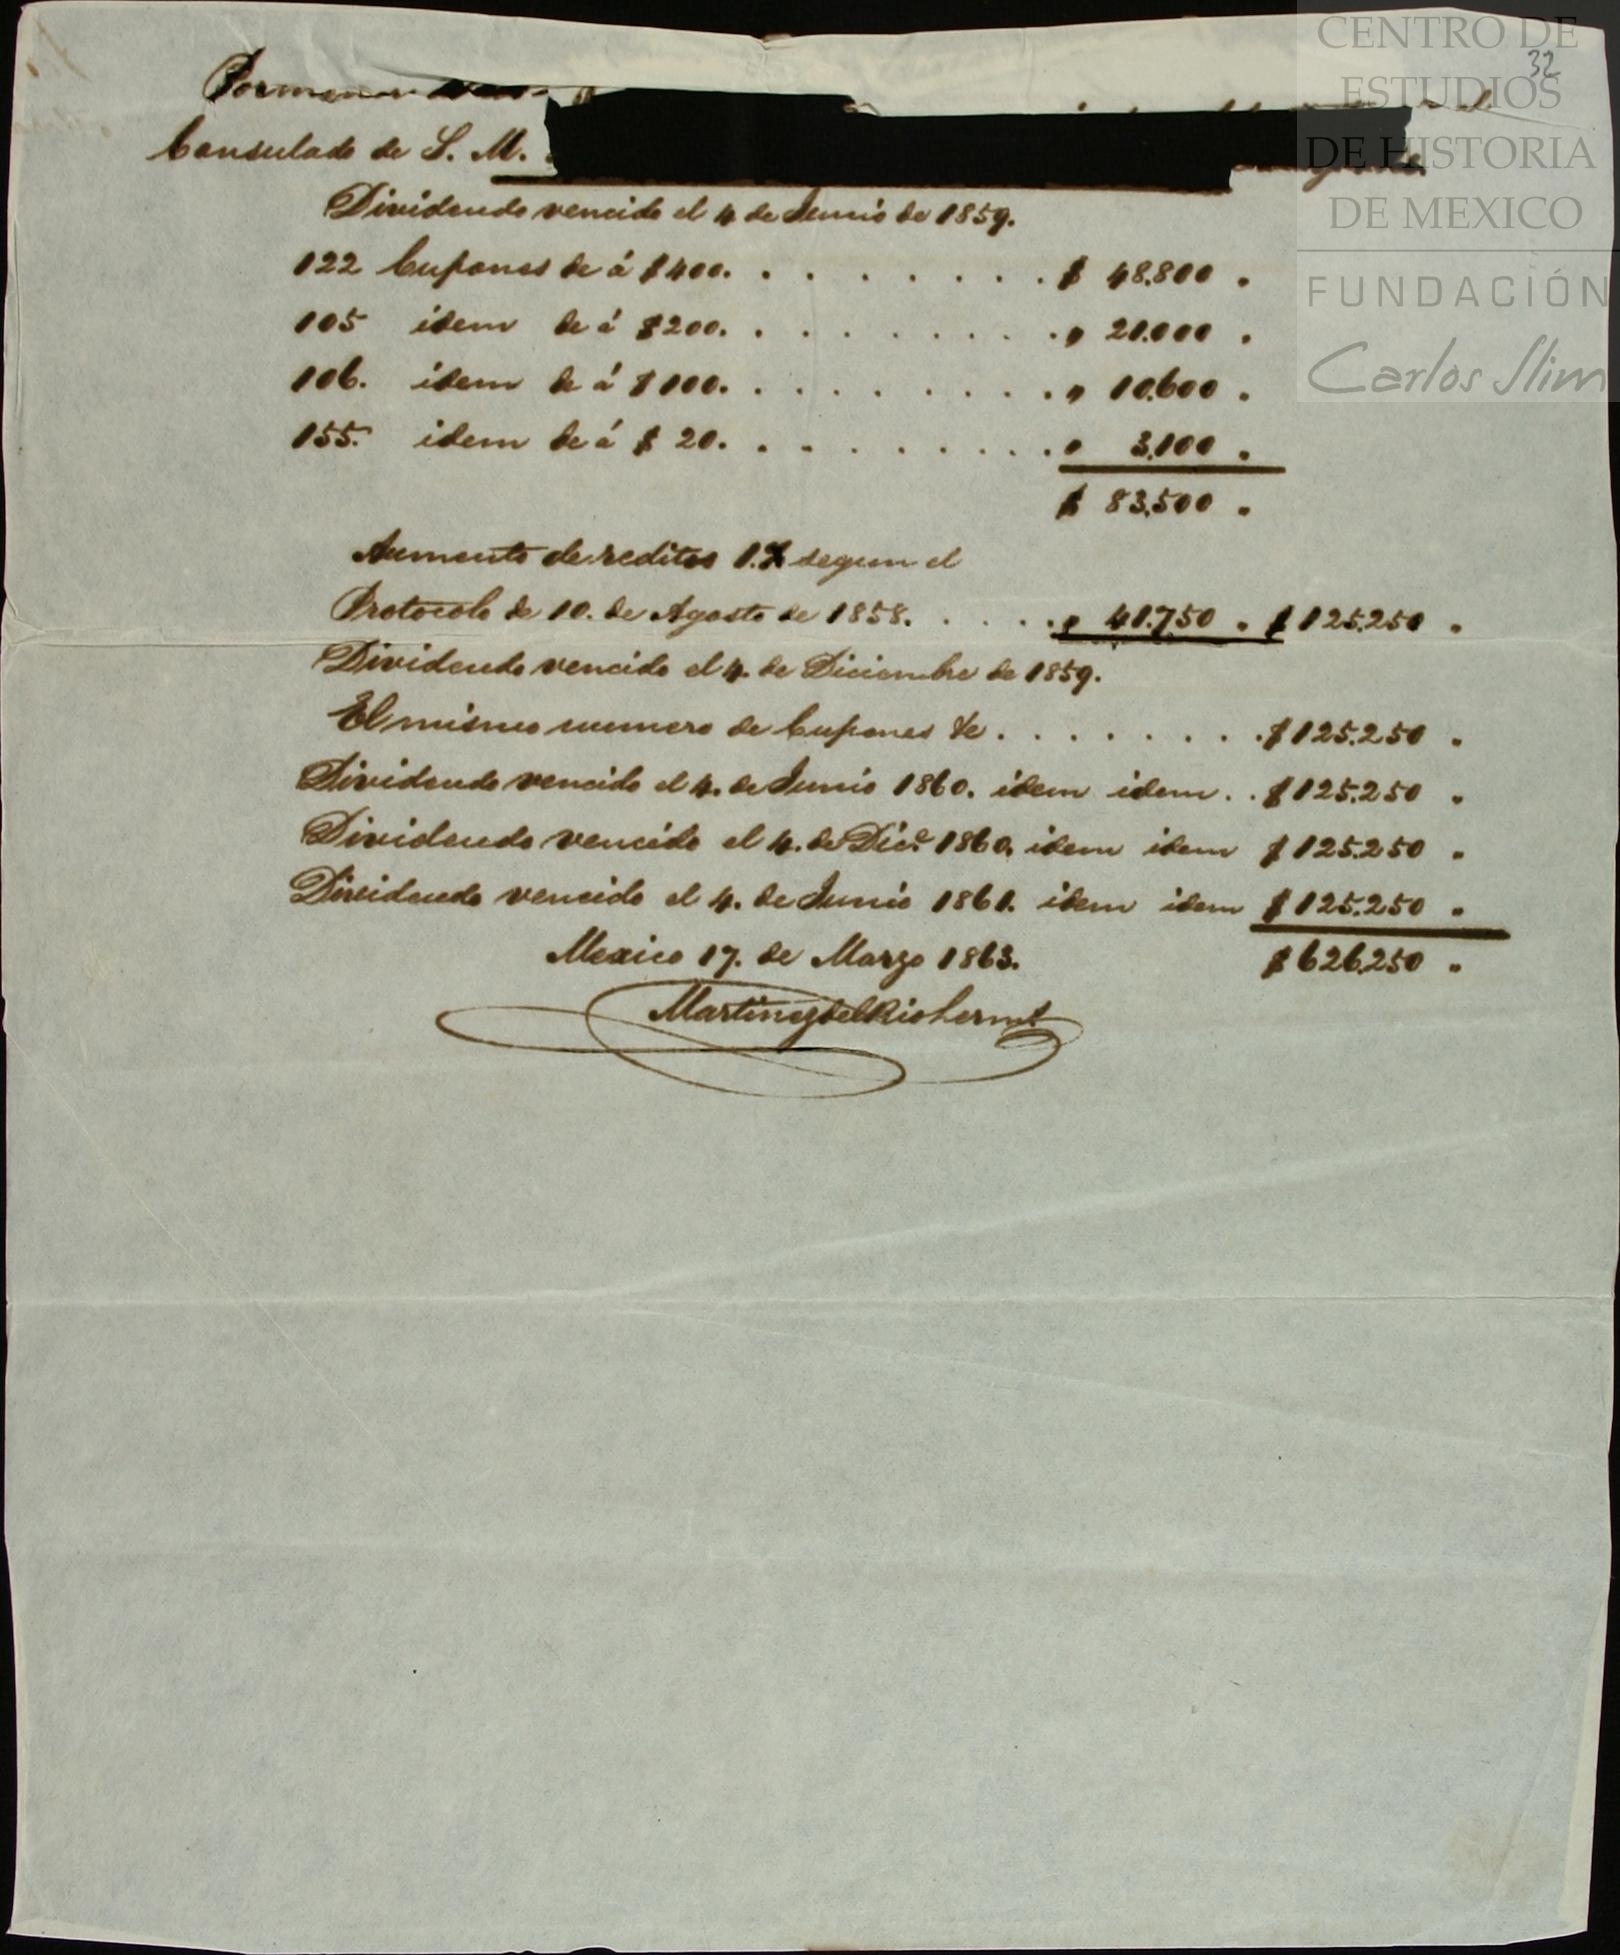 32
Pormenor
Consulado de S. M.
Dividendo vencido el 4 de Junio de 1859.
122 Cupones de á $400. . . . . . . . . $ 48.800 "
105 idem de á $200. . . . . . . . . " 21.000 "
106. idem de á $100. . . . . . . . . " 10.600 "
155. idem de á $20. . . . . . . . . " 3.100 "
$ 83.500 "
Aumento de reditos 1.% segun el
Protocolo de 10. de Agosto de 1858. . . . . " 41.750 " $ 125.250 "
Dividendo vencido el 4. de Diciembre de 1859.
El mismo numero de Cupones &c . . . . . . . . $ 125.250 "
Dividendo vencido el 4. de Junio 1860. idem idem . . $ 125.250 "
Dividendo vencido el 4. de Dice. 1860, idem idem $ 125.250 "
Dividendo vencido el 4. de Junio 1861. idem idem $ 125.250 "
Mexico 17. de Marzo 1863. $ 626.250 "
Martinez del Rio herms
CENTRO DE
ESTUDIOS
DE HISTORIA
DE MEXICO
FUNDACIÓN
Carlos Slim